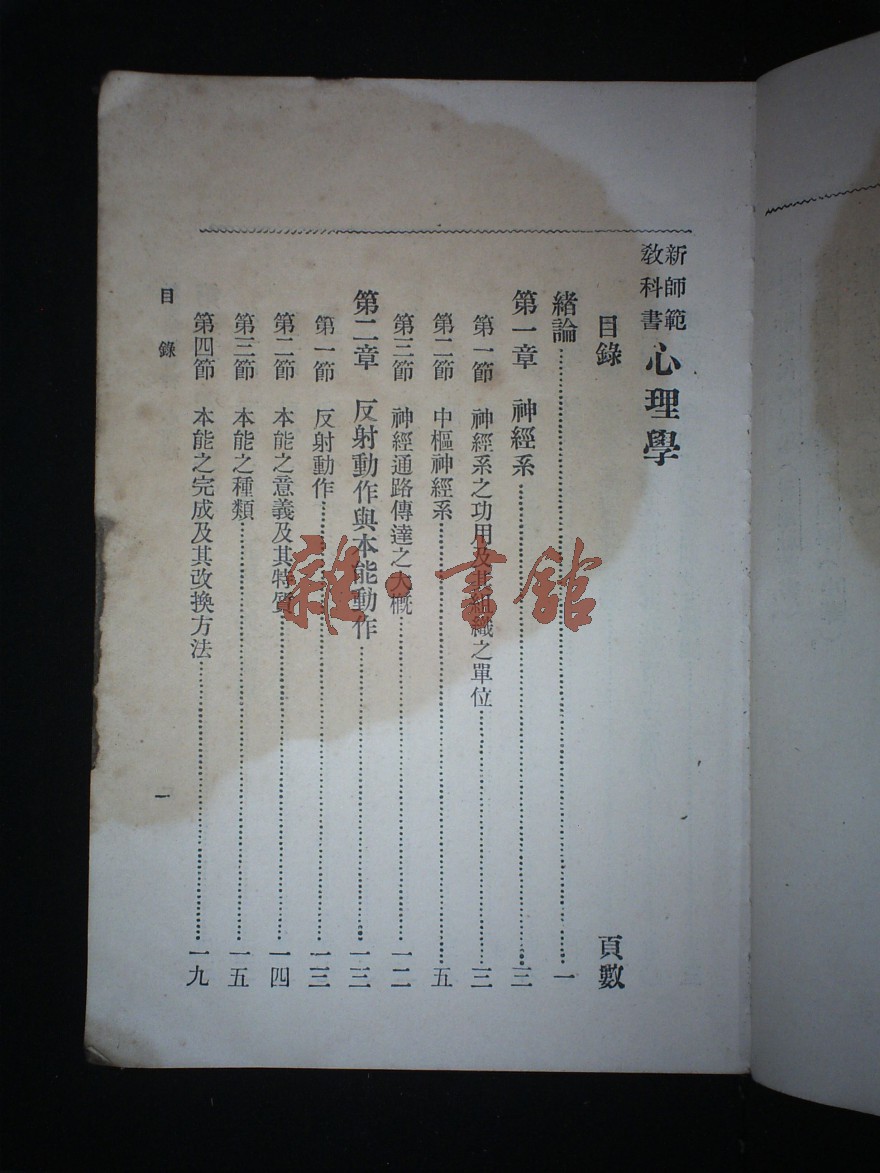 新師範
教科書
心理學
目錄 頁數
緒論 一
第一章 神經系 三
第一節 神經系之功用及其組織之單位 三
第二節 中樞神經系 五
第三節 神經通路傳達之大概 一二
第二章 反射動作與本能動作 一三
第一節 反射動作 一三
第二節 本能之意義及其特質 一四
第三節 本能之種類 一五
第四節 本能之完成及其改換方法 一九
目錄 一
雜·書館